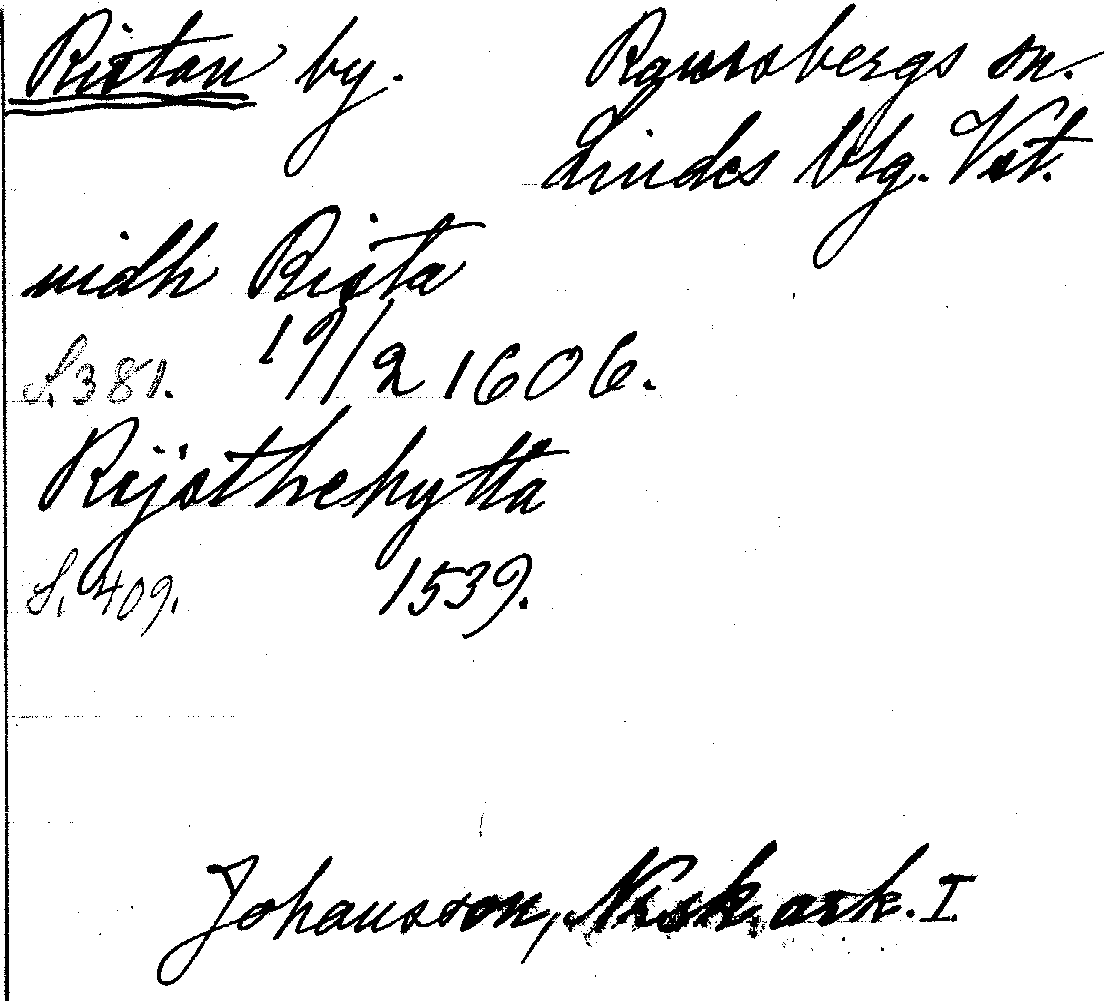 Ristan by. Ramsbergs sn.
Lindes blg. Vst.
vidh Rista
S. 381. 19/2 1606.
Rijsthehytta
S. 409. 1539.
Johansson, Nrsk. ark. I.